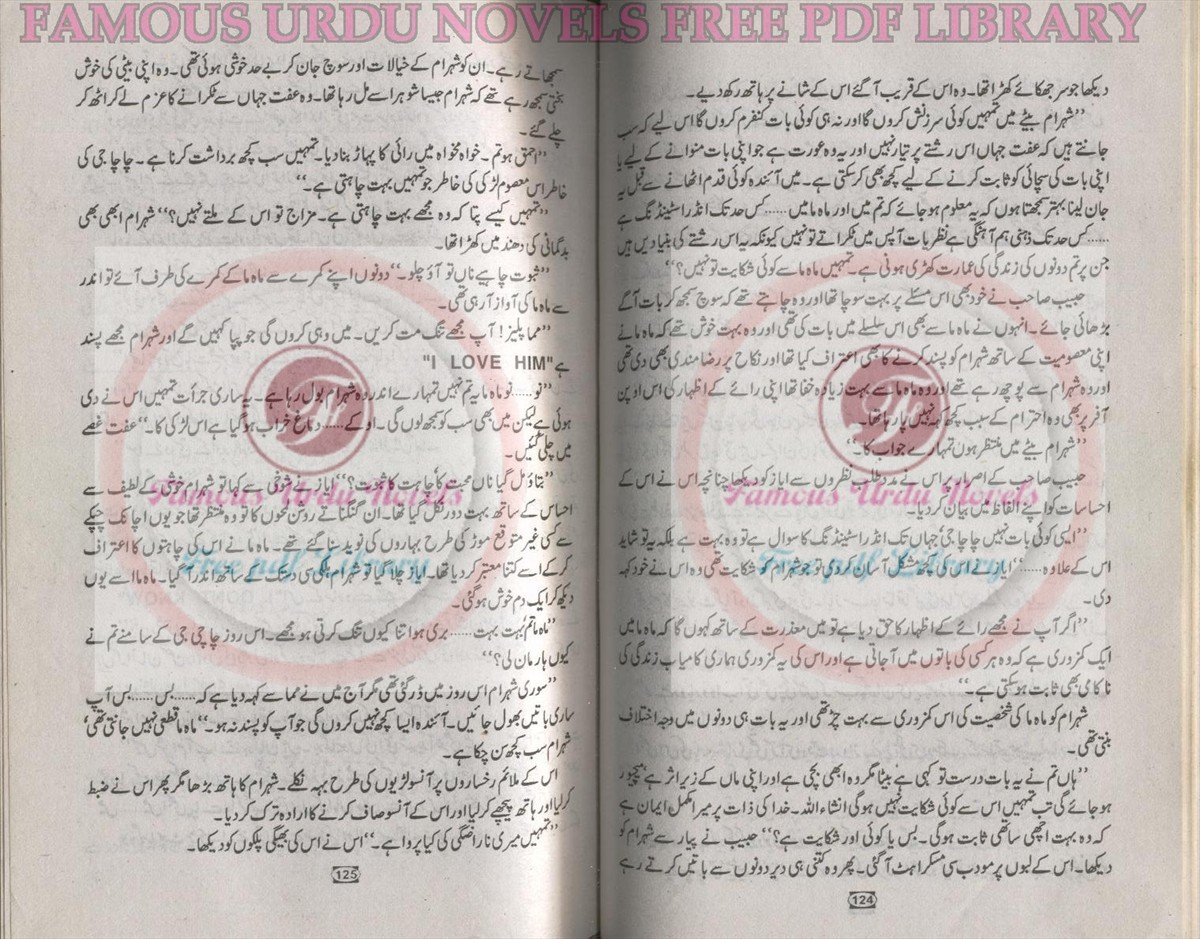 FAMOUS URDU NOVELS FREE PDF LIBRARY
دیکھا جو سر جھکائے کھڑا تھا۔ وہ اس کے قریب آ گئے اس کے شانے پر ہاتھ رکھ دیے۔
”شہرام بیٹے میں تمہیں کوئی سرزنش کروں گا اور نہ ہی کوئی بات کنفرم کروں گا اس لیے کہ سب
جانتے ہیں کہ عفت جہاں اس رشتے پر تیار نہیں اور یہ وہ عورت ہے جو اپنی بات منوانے کے لیے یا
اپنی بات کی سچائی کو ثابت کرنے کے لیے کچھ بھی کر سکتی ہے۔ میں آئندہ کوئی قدم اٹھانے سے قبل یہ
جان لینا بہتر سمجھتا ہوں کہ یہ معلوم ہو جائے کہ تم میں اور ماہ ما میں ......کس حد تک انڈر اسٹینڈنگ ہے
......کس حد تک ذہنی ہم آہنگی ہے نظریات آپس میں ٹکراتے تو نہیں کیونکہ یہ اس رشتے کی بنیادیں ہیں
جن پر تم دونوں کی زندگی کی عمارت کھڑی ہونی ہے۔ تمہیں ماہ ما سے کوئی شکایت تو نہیں؟“
حبیب صاحب نے خود بھی اس مسئلے پر بہت سوچا تھا اور وہ چاہتے تھے کہ سوچ سمجھ کر بات آگے
بڑھائی جائے۔ انہوں نے ماہ ما سے بھی اس سلسلے میں بات کی تھی اور وہ بہت خوش تھے کہ ماہ ما نے
اپنی معصومیت کے ساتھ شہرام کو پسند کرنے کا بھی اعتراف کیا تھا اور نکاح پر رضا مندی بھی دی تھی
اور وہ شہرام سے پوچھ رہے تھے اور وہ ماہ ما سے بہت زیادہ خفا تھا اپنی رائے کے اظہار کی اس اوپن
آفر پر بھی وہ احترام کے سبب کچھ کہہ نہیں پا رہا تھا۔
”شہرام بیٹے میں منتظر ہوں تمہارے جواب کا۔“
حبیب صاحب کے اصرار پر اس نے مدد طلب نظروں سے ایاز کو دیکھا چنانچہ اس نے اس کے
احساسات کو اپنے الفاظ میں بیان کر دیا۔
”ایسی کوئی بات نہیں چاچا جی! جہاں تک انڈر اسٹینڈنگ کا سوال ہے تو وہ بہت ہے بلکہ یہ تو شاید
اس کے علاوہ......“ ایاز نے اس کی کچھ مشکل آسان کر دی تو جو شہرام کو شکایت تھی وہ اس نے خود کہہ
دی۔
”اگر آپ نے مجھے رائے کے اظہار کا حق دیا ہے تو میں معذرت کے ساتھ کہوں گا کہ ماہ ما میں
ایک کمزوری ہے کہ وہ ہر کسی کی باتوں میں آ جاتی ہے اور اس کی یہ کمزوری ہماری کامیاب زندگی کی
ناکامی بھی ثابت ہو سکتی ہے۔“
شہرام کو ماہ ما کی شخصیت کی اس کمزوری سے بہت چڑ تھی اور یہ بات ہی دونوں میں وجہ اختلاف
بنتی تھی۔
”ہاں تم نے یہ بات درست تو کہی ہے بیٹا مگر وہ ابھی بچی ہے اور اپنی ماں کے زیر اثر ہے میچیور
ہو جائے گی تب تمہیں اس سے کوئی شکایت نہیں ہوگی انشاء اللہ۔ خدا کی ذات پر میرا مکمل ایمان ہے
کہ وہ بہت اچھی ساتھی ثابت ہوگی۔ بس یا کوئی اور شکایت ہے؟“ حبیب نے پیار سے شہرام کو
دیکھا۔ اس کے لبوں پر مودب سی مسکراہٹ آ گئی۔ پھر وہ کتنی ہی دیر دونوں سے باتیں کرتے رہے
124
سمجھاتے رہے۔ ان کو شہرام کے خیالات اور سوچ جان کر بے حد خوشی ہوئی تھی۔ وہ اپنی بیٹی کی خوش
بختی سمجھ رہے تھے کہ شہرام جیسا شوہر اسے مل رہا تھا۔ وہ عفت جہاں سے ٹکرانے کا عزم لے کر اٹھ کر
چلے گئے۔
”احمق ہو تم۔ خواہ مخواہ میں رائی کا پہاڑ بنا دیا۔ تمہیں سب کچھ برداشت کرنا ہے۔ چاچا جی کی
خاطر اس معصوم لڑکی کی خاطر جو تمہیں بہت چاہتی ہے۔“
”تمہیں کیسے پتا کہ وہ مجھے بہت چاہتی ہے۔ مزاج تو اس کے ملتے نہیں؟“ شہرام ابھی بھی
بدگمانی کی دھند میں کھڑا تھا۔
”ثبوت چاہیے ناں تو آؤ چلو۔“ دونوں اپنے کمرے سے ماہ ما کے کمرے کی طرف آئے تو اندر
سے ماہ ما کی آواز آ رہی تھی۔
”مما پلیز! آپ مجھے تنگ مت کریں۔ میں وہی کروں گی جو پپا کہیں گے اور شہرام مجھے پسند
ہے "I LOVE HIM"
”نو......نو ماہ ما یہ تم نہیں تمہارے اندر وہ شہرام بول رہا ہے۔ یہ ساری جرأت تمہیں اس نے دی
ہوئی ہے لیکن میں بھی سب کو سمجھ لوں گی۔ اوکے......دماغ خراب ہو گیا ہے اس لڑکی کا۔“ عفت غصے
میں چلی گئیں۔
”بتاؤ مل گیا ناں محبت کا چاہت کا ثبوت؟“ ایاز نے شوخی سے کہا تو شہرام خوشی کے لطیف سے
احساس کے ساتھ بہت دور نکل گیا تھا۔ ان گنگناتے روشن لمحوں کا تو وہ منتظر تھا جو یوں اچانک چپکے
سے کسی غیر متوقع موڑ کی طرح بہاروں کی نوید سنا گئے تھے۔ ماہ ما نے اس کی چاہتوں کا اعتراف
کر کے اسے کتنا معتبر کر دیا تھا۔ ایاز چلا گیا تو شہرام ہلکی سی دستک کے ساتھ اندر آ گیا۔ ماہ ما اسے یوں
دیکھ کر ایک دم خوش ہو گئی۔
”ماہ ما تم بہت بہت......بری ہو اتنا کیوں تنگ کرتی ہو مجھے۔ اس روز چاچی جی کے سامنے تم نے
کیوں ہار مان لی؟“
”سوری شہرام اس روز میں ڈر گئی تھی مگر آج میں نے مما سے کہہ دیا ہے کہ......بس......بس آپ
ساری باتیں بھول جائیں۔ آئندہ ایسا کچھ نہیں کروں گی جو آپ کو پسند نہ ہو۔“ ماہ ما قطعی نہیں جانتی تھی
شہرام سب کچھ سن چکا ہے۔
اس کے ملائم رخساروں پر آنسو لڑیوں کی طرح بہہ نکلے۔ شہرام کا ہاتھ بڑھا مگر پھر اس نے ضبط
کر لیا اور ہاتھ پیچھے کر لیا اور اس کے آنسو صاف کرنے کا ارادہ ترک کر دیا۔
”تمہیں میری ناراضگی کی کیا پروا ہے۔“ اس نے اس کی بھیگی پلکوں کو دیکھا۔
125
Famous Urdu Novels
Free pdf Library
Famous Urdu Novels
Free pdf Library